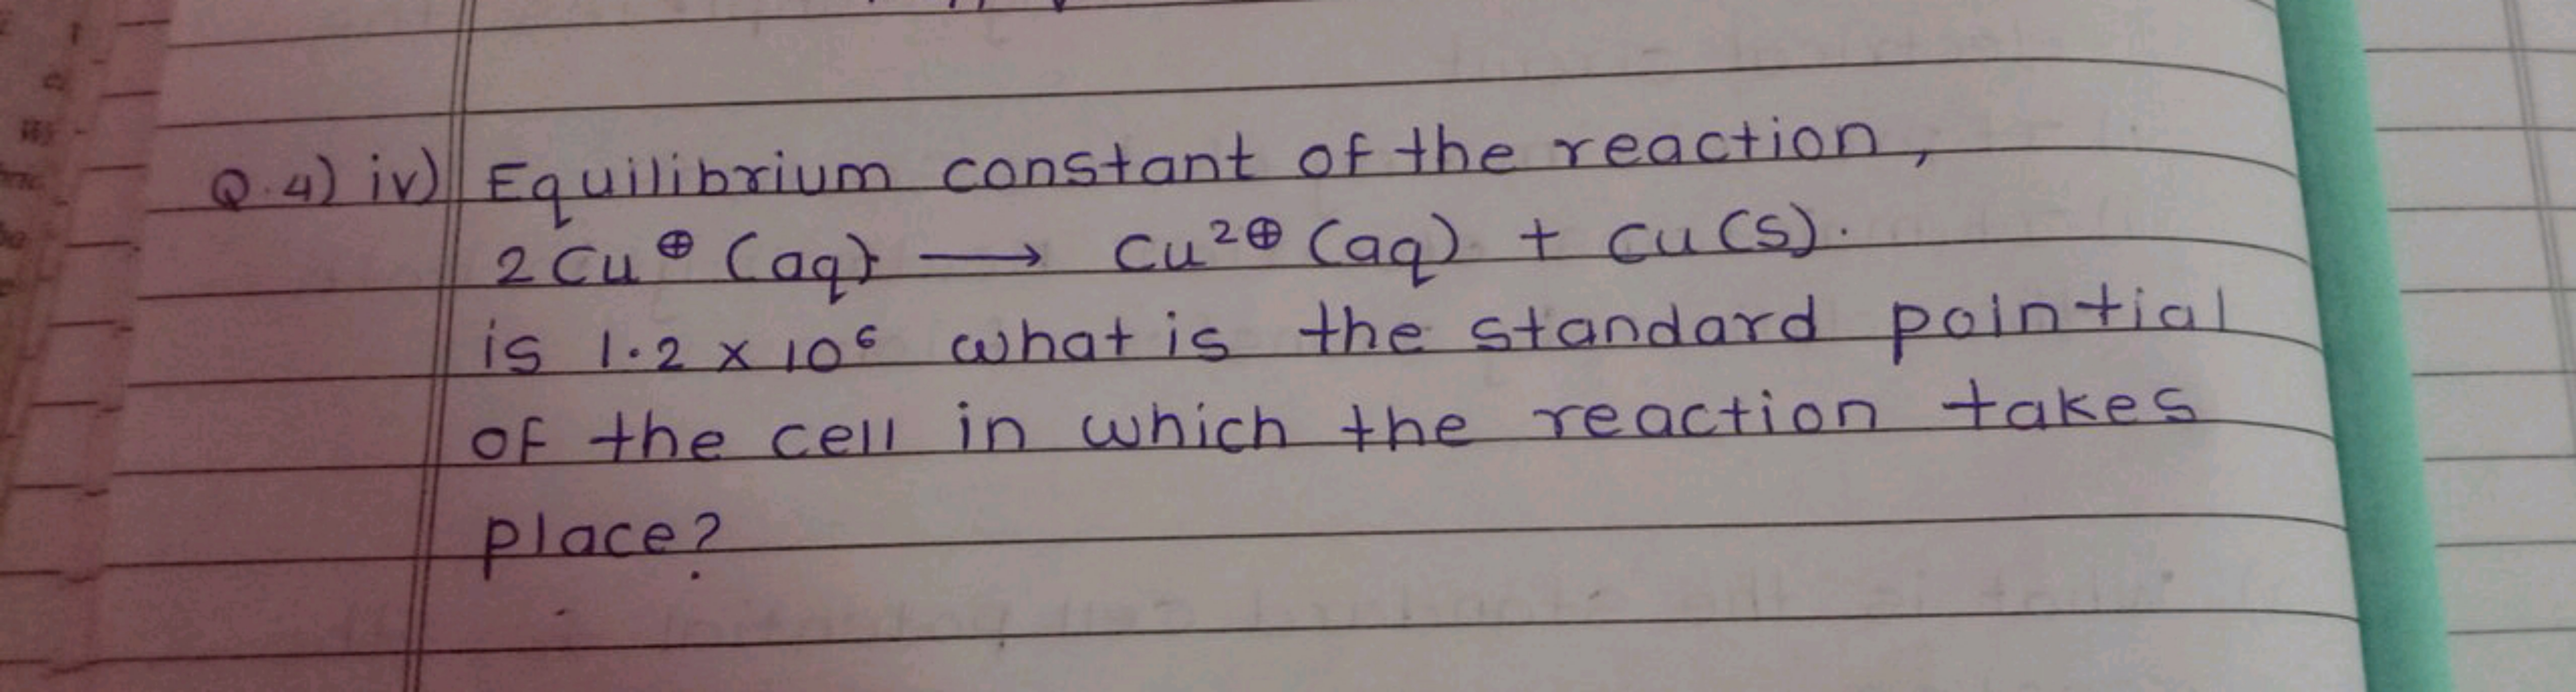 Q.4) iv) Equilibrium constant of the reaction,
2Cu⊕ (aq) ⟶ Cu²⊕ (aq) + Cu(s).
is 1.2 × 10⁶ what is the standard pointial
of the cell in which the reaction takes
place?